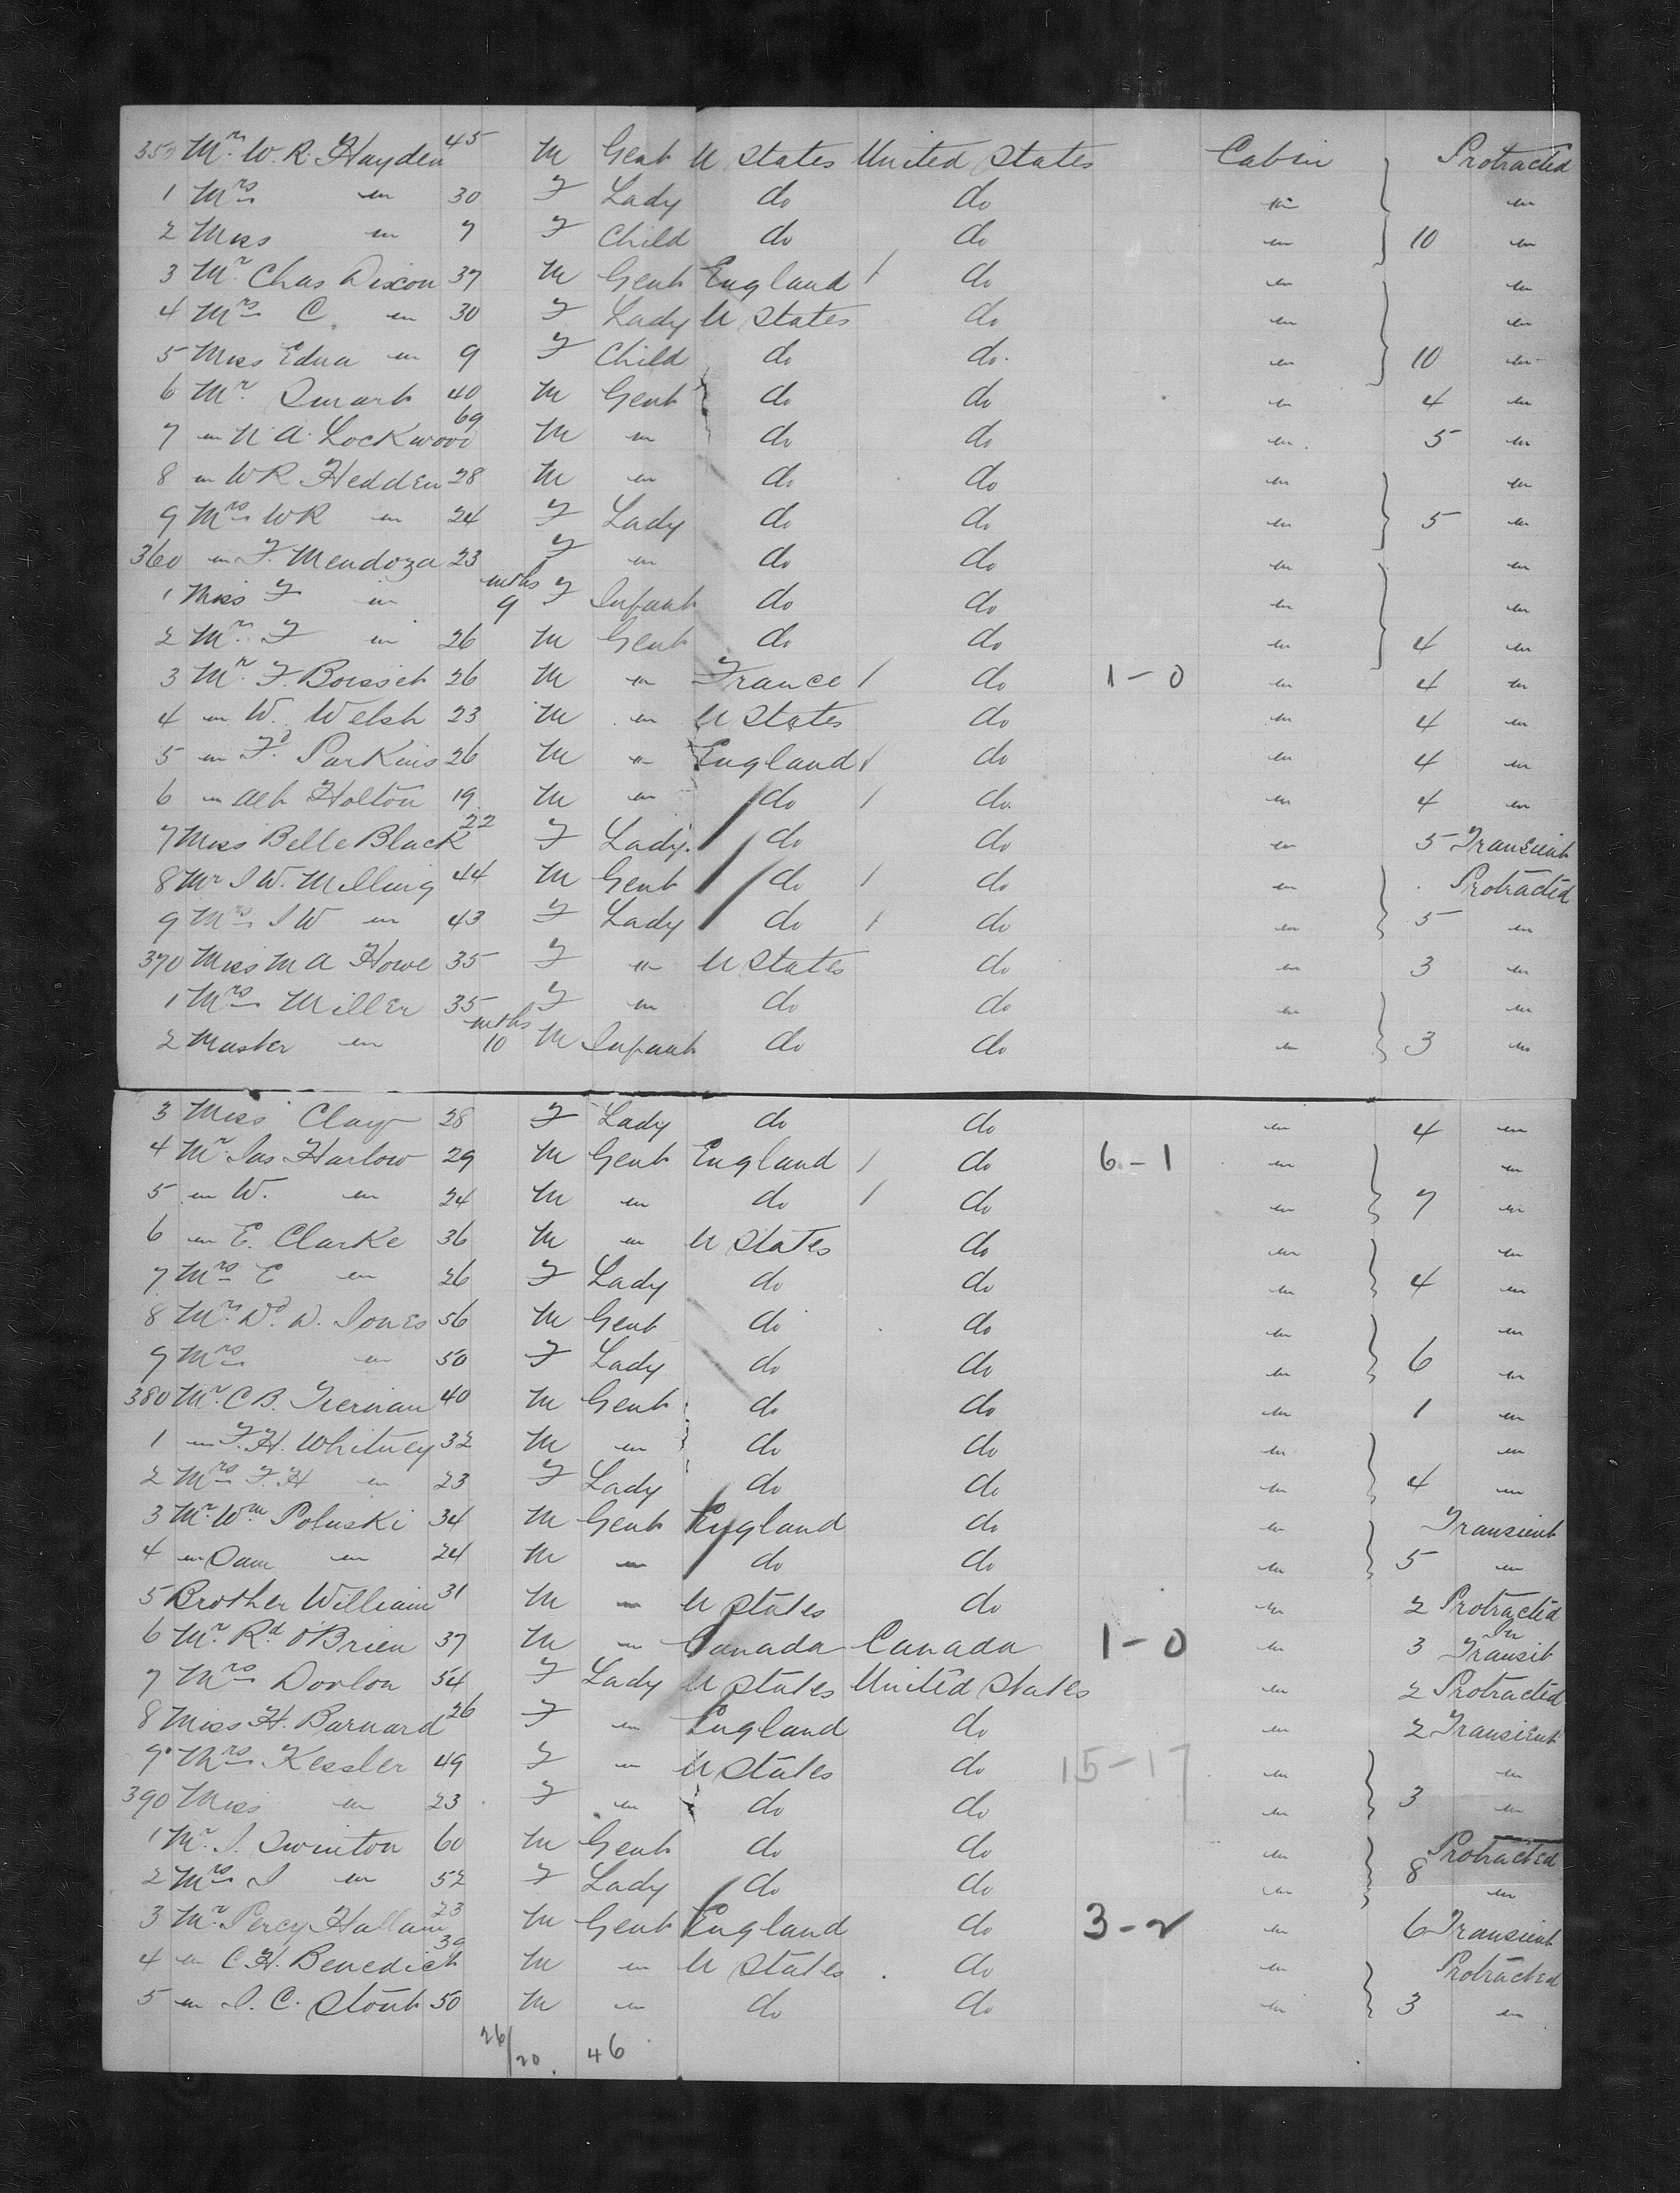 350 Mr. W. R. Hayden 45 M Gent U States United States Cabin Protracted
1 Mrs " 30 F Lady do do " "
2 Miss " 7 F Child do do " 10 "
3 Mr. Chas Dixon 37 M Gent England / do " "
4 Mrs C. " 30 F Lady U States do " "
5 Miss Edna " 9 F Child do do. " 10 "
6 Mr. Smart 40 M Gent do do " 4 "
7 " N. A. Lockwood 69 M " do do " 5 "
8 " W R Hedden 28 M " do do " "
9 Mrs W R " 24 F Lady do do " 5 "
360 " F. Mendoza 23 F " do do " "
1 Miss F " mths 9 F Infant do do " "
2 Mr. F " 26 M Gent do do " 4 "
3 Mr. F. Boisset 26 M " France / do 1-0 " 4 "
4 " W. Welsh 23 M " U States do " 4 "
5 " Fd. Parkins 26 M " England / do " 4 "
6 " Alb Holton 19 M " do / do. " 4 "
7 Miss Belle Black 22 F Lady. do do " 5 Transient
8 Mr J W. Melling 44 M Gent do / do " Protracted
9 Mrs J W " 43 F Lady do / do " 5 "
370 Miss M A Howe 35 F " U States do " 3 "
1 Mrs Miller 35 F " do do " "
2 Master " mths 10 M Infant do do " 3 "
3 Miss Clay 28 F Lady do do " 4 "
4 Mr. Jas Harlow 29 M Gent England / do 6-1 " "
5 " W. " 24 M " do / do " 7 "
6 " E. Clarke 36 M " U States do " "
7 Mrs E " 26 F Lady do do " 4 "
8 Mr. Dd. D. Jones 56 M Gent do do " "
9 Mrs " 50 F Lady do do " 6 "
380 Mr. C B. Tiernan 40 M Gent do do " 1 "
1 " F. H. Whitney 32 M " do do " "
2 Mrs F. H " 23 F Lady do do " 4 "
3 Mr. Wm Poluski 34 M Gent England do " Transient
4 " Sam " 24 M " do do " 5 "
5 Brother William 31 M " U States do " 2 Protracted
6 Mr. Rd O'Brien 37 M " Canada Canada 1-0 " 3 In Transit
7 Mrs Dorlon 54 F Lady U States United States " 2 Protracted
8 Miss H. Barnard 26 F " England do " 2 Transient
9 Mrs Kessler 49 F " U States do 15-17 " "
390 Miss " 23 F " do do " 3 "
1 Mr. J. Swinton 60 M Gent do do " Protracted
2 Mrs J " 52 F Lady do do " 8 "
3 Mr. Percy Hallam 23 M Gent England do 3-2 " 6 Transient
4 " C. H. Benedict 39 M " U States. do " Protracted
5 " J. C. Stout 50 M " do do " 3 "
26/20. 46